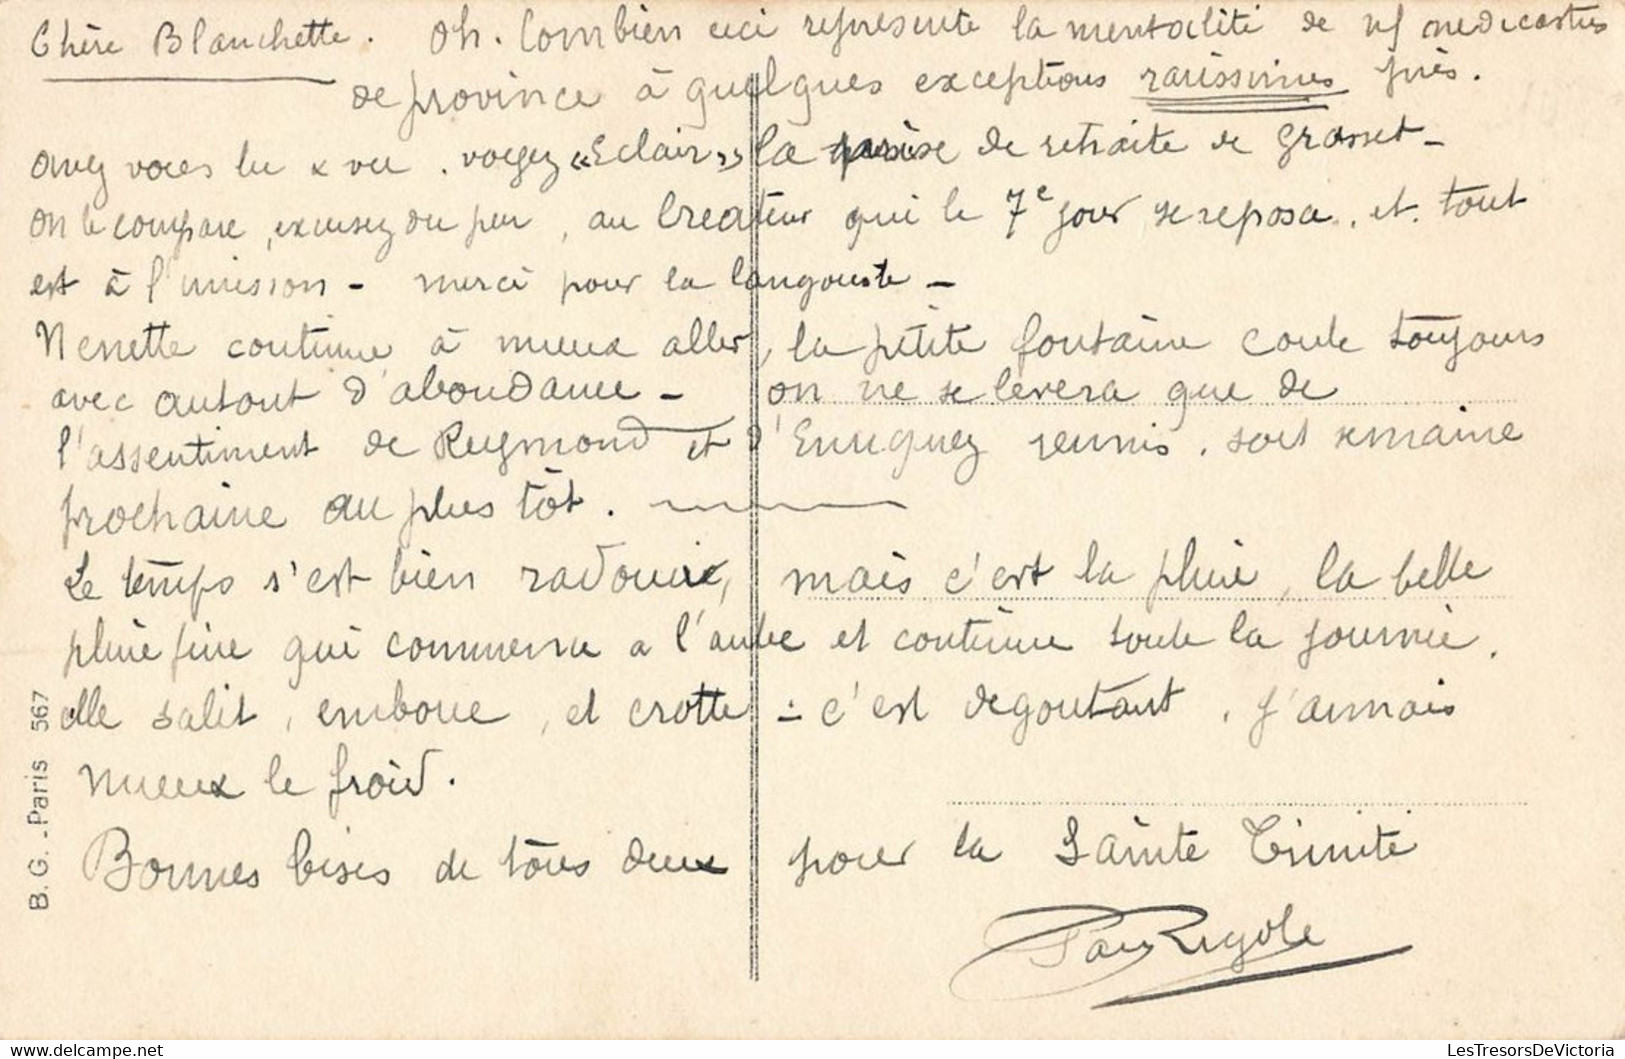 Chère Blanchette. Oh. Combien ceci represente la mentalité de nos medicastres
de province à quelques exceptions rarissimes près.
avez vous lu x vu. voyez "Eclair" la prise de retraite de Grasset -
On le compare, excusez du peu, au Createur qui le 7e jour se reposa. et tout
est à l'unisson - merci pour la langouste -
Nenette continue à mieux aller, la petite fontaine coule toujours
avec autant d'abondance - on ne se levera que de
l'assentiment de Reymond et d'Enuquez reunis. soit semaine
prochaine au plus tôt.
Le temps s'est bien radouci, mais c'est la pluie, la belle
pluie fine qui commence a l'aube et continue toute la journée.
elle salit, emboue, et crotte - c'est degoutant. J'aimais
mieux le froid.
Bonnes bises de tous deux pour la Sainte Trinité
Rigole
B.G. - Paris 567
LesTresorsDeVictoria